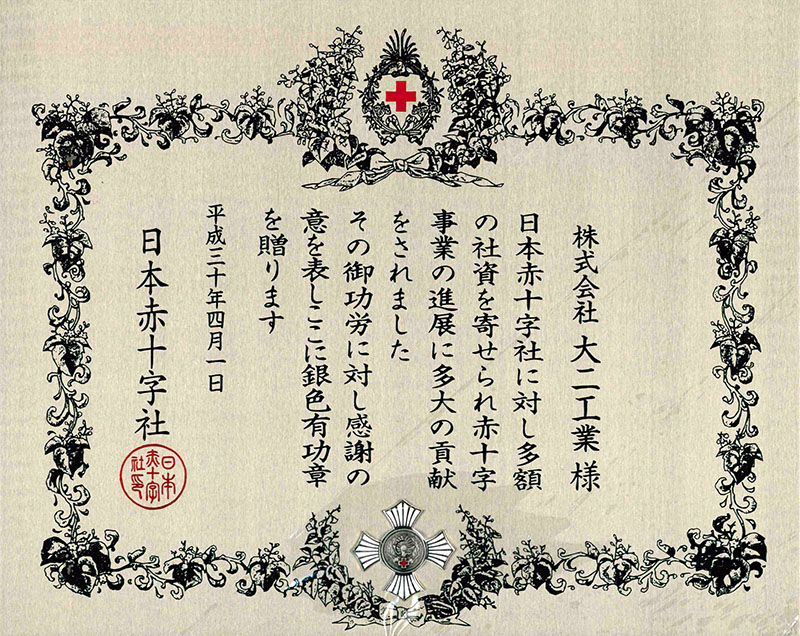 株式会社 大二工業 様
日本赤十字社に対し多額
の社資を寄せられ赤十字
事業の進展に多大の貢献
をされました
その御功労に対し感謝の
意を表しここに銀色有功章
を贈ります
平成三十年四月一日
日本赤十字社
日本
赤十字
社印